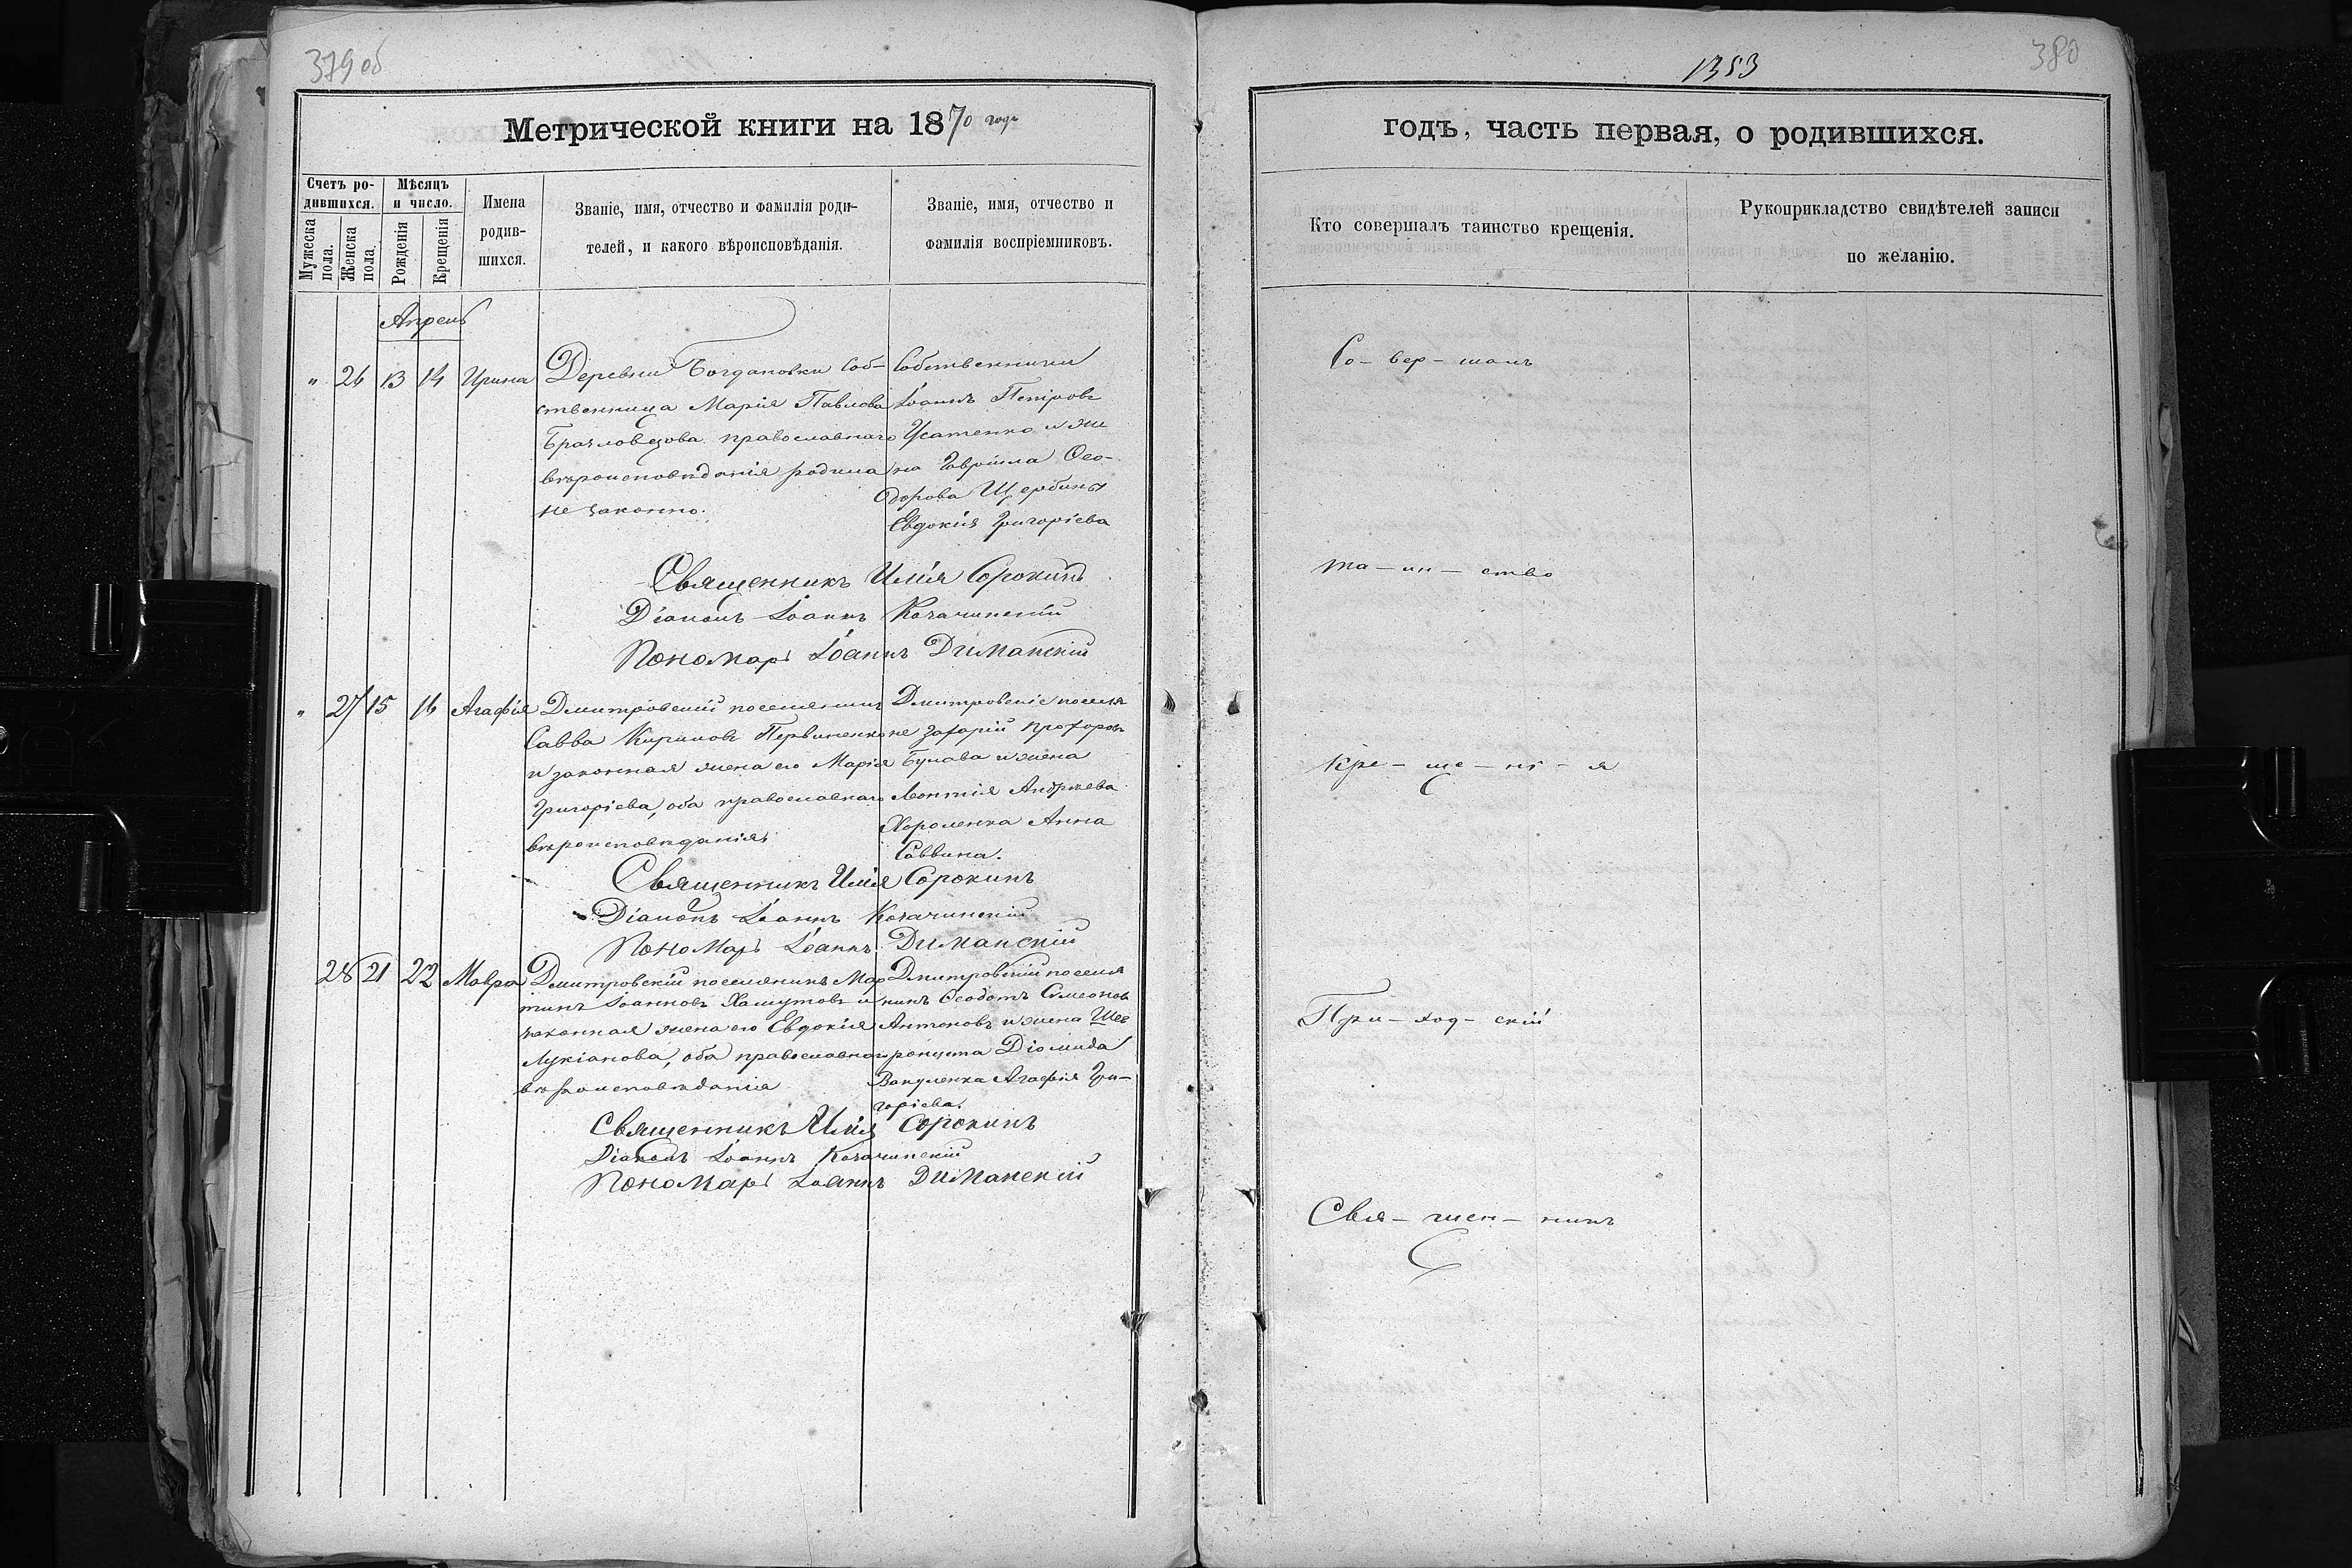 379 об
Метрической книги на 1870 годъ
Счетъ ро-
дившихся.
Мужеска
пола.
Женска
пола.
Мѣсяцъ
и число.
Рожденія
Крещенія
Имена
родив-
шихся.
Званіе, имя, отчество и фамилія роди-
телей, и какого вѣроисповѣданія.
Званіе, имя, отчество и
фамилія воспріемниковъ.
Апрель
" 26 13 14 Ирина
Деревни Богдановки Соб-
ственница Марія Павлова
православнаго
вѣроисповѣданія родила
не законно.
Собственники
Іоаннъ Петровъ
Усатенко и же
на Гавріила Ѳео-
дорова Щербины
Евдокія Григоріева
Священникъ Илія Сорокинъ
Діаконъ Іоаннъ Козачинскій
Пономарь Іоаннъ Диманскій
" 27 15 16 Агафія
Дмитровскій поселянинъ
Савва Кириловъ
и законная жена его Марія
Григоріева, оба православнаго
вѣроисповѣданія.
Дмитровскіе поселя
не Захарій Прохоровъ
Булава и жена
Леонтія Андреева
Хороленка Анна
Саввина.
Священникъ Илія Сорокинъ
Діаконъ Іоаннъ Козачинскій
Пономарь Іоаннъ Диманскій
28 21 22 Мавра
Дмитровскій поселянинъ Мар
тинъ Іоанновъ Хамутовъ и
законная жена его Евдокія
Лукіанова, оба православнаго
вѣроисповѣданія
Дмитровскій поселя
нинъ Ѳеодотъ Симеоновъ
Антоновъ и жена
Діомида
Вакуленка Агафія Гри-
горіева.
Священникъ Илія Сорокинъ
Діаконъ Іоаннъ Козачинскій
Пономарь Іоаннъ Диманскій
1353
380
годъ, часть первая, о родившихся.
Кто совершалъ таинство крещенія.
Рукоприкладство свидѣтелей записи
по желанію.
Со- вер- шалъ
та- ин- ство
Кре- ще- ні- я
При- ход- скій
Свя- щен- никъ